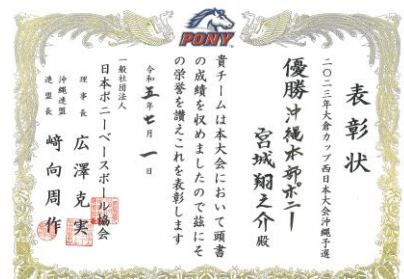 PONY
表彰状
二〇二三年大倉カップ西日本大会沖縄予選
優勝 沖縄本部ポニー
宮城翔之介殿
貴チームは本大会において頭書
の成績を収めましたので茲にそ
の栄誉を讃えこれを表彰します
令和五年七月一日
一般社団法人
日本ポニーベースボール協会
理事長 広澤克実
沖縄連盟
連盟長 﨑向周作